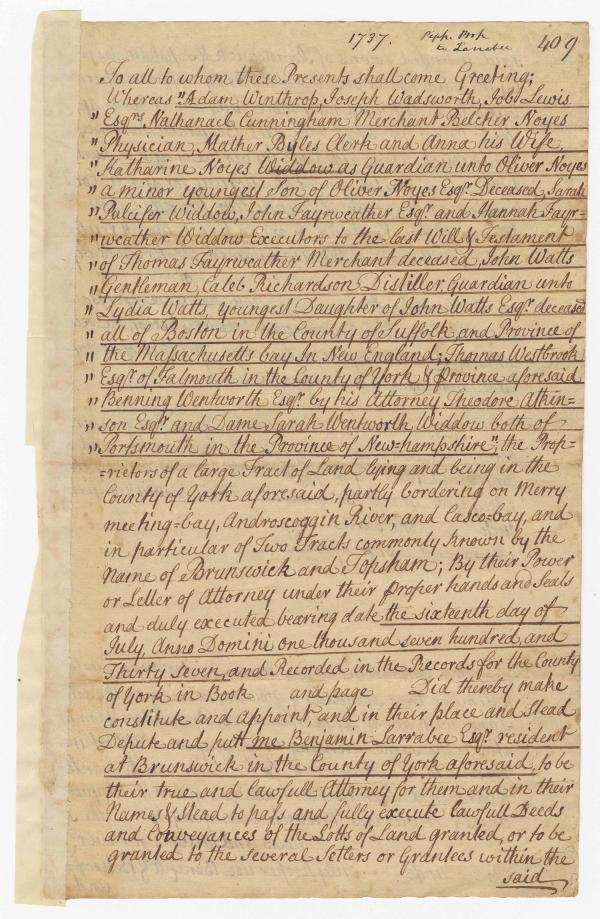 1737.
Peph. Prop
to Larrabee
409
To all to whom these Presents shall come Greeting;
Whereas "Adam Winthrop, Joseph Wadsworth, Job Lewis.
" Esqrs Nathanael Cunningham Merchant Belcher Noyes
" Physician, Mather Byles Clerk and Anna his Wife,
" Katharine Noyes Widdow as Guardian unto Oliver Noyes
" a minor youngest Son of Oliver Noyes Esqr. Deceased, Sarah
" Pulcifer Widdow, John Fayrweather Esqr. and Hannah Fayr=
" weather Widdow Executors to the last Will & Testament
" of Thomas Fayrweather Merchant deceased, John Watts
" Gentleman, Caleb Richardson Distiller, Guardian unto
" Lydia Watts, youngest Daughter of John Watts Esqr. deceased
" all of Boston in the County of Suffolk and Province of
" the Massachusetts bay In New England; Thomas Westbrook
" Esqr. of Falmouth in the County of York & province aforesaid
" Benning Wentworth Esqr. by his Attorney Theodore Atkin=
" son Esqr. and Dame Sarah Wentworth Widdow both of
" Portsmouth in the Province of New=hampshire"; the Prop=
=rietors of a large Tract of Land lying and being in the
County of York aforesaid, partly bordering on Merry
meeting=bay, Androscoggin River, and Casco=bay, and
in particular of Two Tracts commonly known by the
Name of Brunswick and Topsham; By their Power
or Letter of Attorney under their proper hands and Seals
and duly executed bearing date the sixteenth day of
July, Anno Domini one thousand seven hundred, and
Thirty seven, and Recorded in the Records for the County
of York in Book and page Did thereby make
constitute and appoint and in their place and Stead
Depute and putt me Benjamin Larrabee Esqr. resident
at Brunswick in the County of York aforesaid, to be
their true and lawfull Attorney for them and in their
Names & Stead to pass and fully execute lawfull Deeds
and Conveyances of the Lotts of Land granted, or to be
granted to the several Setlers or Grantees within the
said